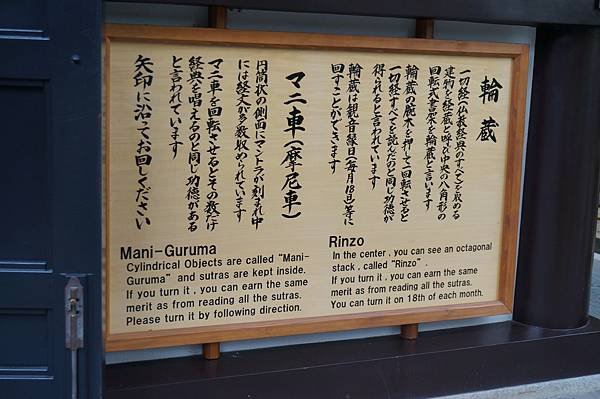 輪蔵
一切経(仏教経典のすべて)を収める
建物を経蔵と呼び中央の八角形の
回転式書架を輪蔵と言います
輪蔵の腕木を押して回転させると
一切経すべてを読んだのと同じ功徳が
得られると言われています
輪蔵は観音縁日(毎月18日)等に
回すことができます
マニ車(摩尼車)
円筒状の側面にマントラが刻まれ中
には経文が多数収められています
マニ車を回転させるとその数だけ
経典を唱えるのと同じ功徳がある
と言われています
矢印に沿ってお回しください
Mani-Guruma
Cylindrical Objects are called "Mani-
Guruma" and sutras are kept inside.
If you turn it, you can earn the same
merit as from reading all the sutras.
Please turn it by following direction.
Rinzo
In the center, you can see an octagonal
stack, called "Rinzo".
If you turn it, you can earn the same
merit as from reading all the sutras.
You can turn it on 18th of each month.